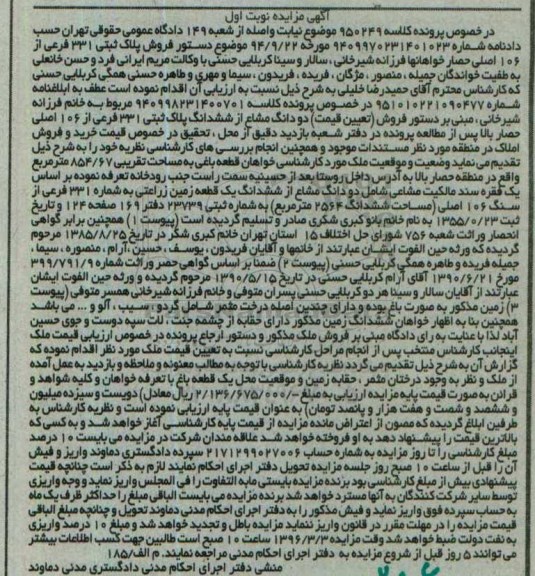 آگهی مزایده نوبت اول
در خصوص پرونده کلاسه ۹۵۰۲۴۹ موضوع نیابت واصله از شعبه ۱۴۹ دادگاه عمومی حقوقی تهران حسب
دادنامه شماره ۹۴۰۹۹۷۰۲۳۱۴۰۱۰۲۳ مورخه ۹۴/۹/۲۲ موضوع دستور فروش پلاک ثبتی ۳۳۱ فرعی از
۱۰۶ اصلی حصار خواهانها فرزانه شیرخانی ، سالار و سینا کربلایی حسنی با وکالت مریم ایرانی فرد و حسن خانعلی
به طفیت خواندگان جمیله ، منصور ، مژگان ، فریده ، فریدون ، سیما و مهری و طاهره حسنی همگی کربلایی حسنی
که کارشناس محترم آقای حمیدرضا خلیلی به شرح ذیل نسبت به ارزیابی آن اقدام نموده است عطف به ابلاغنامه
شماره ۹۵۱۰۱۰۲۲۱۰۹۰۴۷۷ در خصوص پرونده کلاسه ۹۴۰۹۹۸۲۳۱۴۰۰۷۰۱ مربوط به خانم فرزانه
شیرخانی ، مبنی بر دستور فروش (تعیین قیمت) دو دانگ مشاع از ششدانگ پلاک ثبتی ۳۳۱ فرعی از ۱۰۶ اصلی
حصار بالا پس از مطالعه پرونده در دفتر شعبه بازدید دقیق از محل ، تحقیق در خصوص قیمت خرید و فروش
املاک در منطقه مورد نظر مستندات موجود و همچنین انجام بررسی های کارشناسی نظریه خود را به شرح ذیل
تقدیم می نماید وضعیت و موقعیت ملک مورد کارشناسی خواهان قطعه باغی به مساحت تقریبی ۸۵۴/۶۷ مترمربع
واقع در منطقه حصار بالا به آدرس داخل روستا بعد از حسینیه سمت راست جنب رودخانه تعرفه نموده بر اساس
یک فقره سند مالکیت مشاعی شامل دو دانگ مشاع از ششدانگ یک قطعه زمین زراعتی به شماره ۳۳۱ فرعی از
سنگ ۱۰۶ اصلی (مساحت ششدانگ ۲۵۶۴ مترمربع) به شماره ثبتی ۲۳۷۳۹ دفتر ۱۶۹ صفحه ۱۲۴ و تاریخ
ثبت ۱۳۵۵/۰/۲۳ به نام خانم بانو کبری شکری صادر و تسلیم گردیده است (پیوست ۱) همچنین برابر گواهی
انحصار وراثت شعبه ۷۵۶ شورای حل اختلاف ۱۵ استان تهران خانم کبری شگر در تاریخ ۱۳۸۵/۸/۲۵ مرحوم
گردیده که ورثه حین الفوت ایشان عبارتند از خانمها و آقایان فریدون ، یوسف ، حسین ، آرام ، منصوره ، سیما ،
جمیله فریده و طاهره همگی کربلایی حسنی (پیوست ۲) ضمنا بر اساس گواهی حصر وراثت شماره ۳۹۹/۷۹۱/۹
مورخ ۱۳۹۰/۶/۲۱ آقای آرام کربلایی حسنی در تاریخ ۱۳۹۰/۵/۱۵ مرحوم گردیده و ورثه حین الفوت ایشان
عبارتند از آقایان سالار و سینا هر دو کربلایی حسنی پسران متوفی و خانم فرزانه شیرخانی همسر متوفی (پیوست
۳) زمین مذکور به صورت باغ بوده و دارای چندین اصله درخت مثمر شامل گردو ، سیب ، آلو و ... می باشد
همچنین بنا به اظهار خواهان ششدانگ زمین مذکور دارای حقابه از چشمه جنت ، لات سپه دوست و جوی حسین
آباد لذا با عنایت به رای دادگاه مبنی بر فروش ملک مذکور و دستور ارجاع پرونده در خصوص ارزیابی قیمت ملک
اینجانب کارشناس منتخب پس از انجام مراحل کارشناسی نسبت به تعیین قیمت ملک مورد نظر اقدام نموده که
گزارش آن به شرح ذیل تقدیم می گردد نظریه کارشناسی با توجه به مطالب معنونه و ملاحظه و بازدید به عمل آمده
از ملک و نظر به وجود درختان مثمر ، حقابه زمین و موقعیت محل یک قطعه باغ با تعرفه خواهان و کلیه شواهد و
قرائن به صورت قیمت پایه مزایده ارزیابی به مبلغ -/۲/۱۳۶/۶۷۵/۰۰۰ ریال معادل) دویست و سیزده میلیون
و ششصد و شصت و هفت هزار و پانصد تومان) به عنوان قیمت پایه ارزیابی نموده است و نظریه کارشناس به
طرفین ابلاغ گردیده که مصون از اعتراض مانده مزایده از قیمت پایه کارشناسی آغاز خواهد شد و به کسی که
بالاترین قیمت را پیشنهاد دهد به او فروخته خواهد شد علاقه مندان شرکت در مزایده می بایست ۱۰ درصد
مبلغ کارشناسی را تا روز مزایده به شماره حساب ۲۱۷۱۲۹۹۰۲۷۰۰۶ سپرده دادگستری دماوند واریز و فیش
آن را قبل از ساعت ۱۰ صبح روز جلسه مزایده تحویل دفتر اجرای احکام نمایند لازم به ذکر است چنانچه قیمت
پیشنهادی بیش از مبلغ کارشناسی بود برنده مزایده بایستی مابه التفاوت را فی المجلس واریز نماید و وجه واریزی
توسط سایر شرکت کنندگان به آنها مسترد خواهد شد برنده مزایده می بایست الباقی مبلغ را حداکثر ظرف یک ماه
به حساب سپرده فوق واریز نماید و فیش مذکور را به دفتر اجرای احکام مدنی دماوند تحویل و چنانچه مبلغ الباقی
قیمت مزایده را در مهلت مقرر در قانون واریز ننماید مزایده باطل و تجدید خواهد شد و مبلغ ۱۰ درصد واریزی
به نفت دولت ضبط خواهد شد وقت مزایده ۱۳۹۶/۳/۳ ساعت ۱۰ صبح است طالبین جهت کسب اطلاعات بیشتر
می توانند ۵ روز قبل از شروع مزایده به دفتر اجرای احکام مدنی مراجعه نمایند. م الف/۱۸۵
منشی دفتر اجرای احکام مدنی دادگستری مدنی دماوند